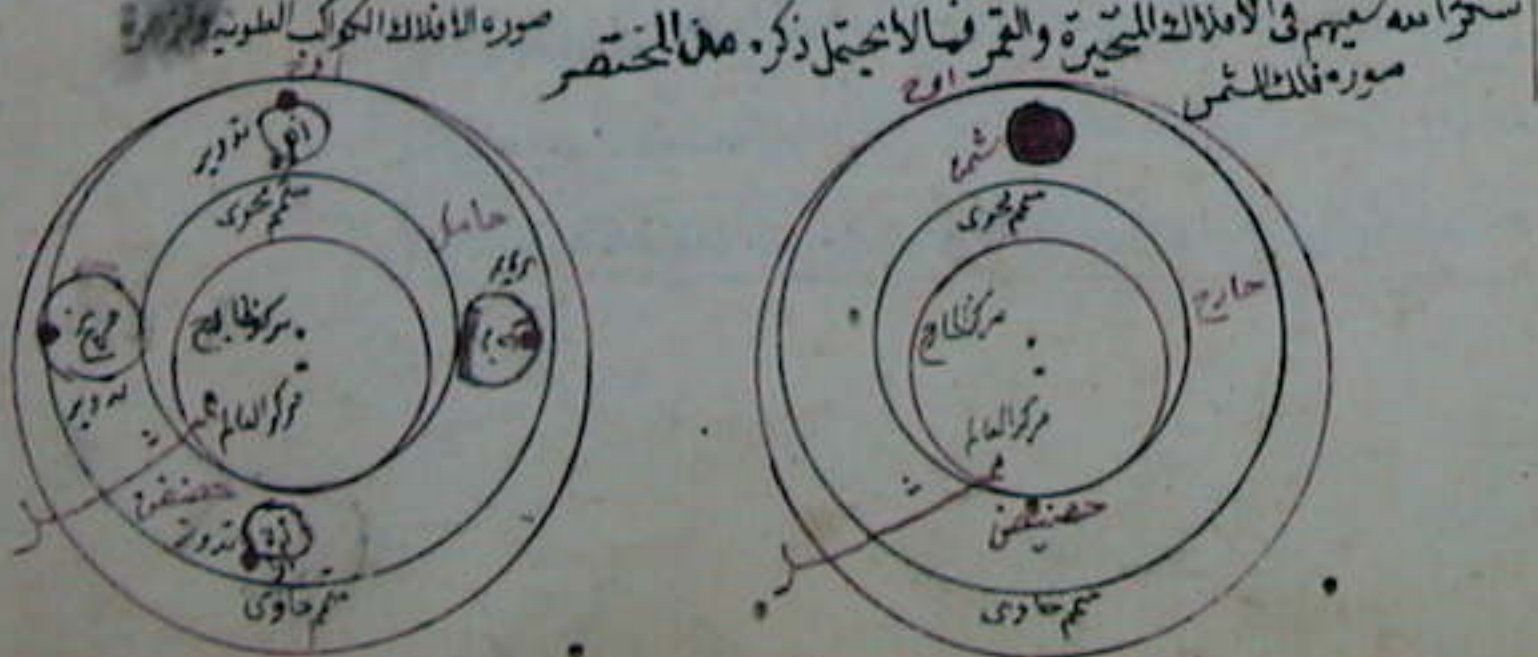 الله سعيهم فى الافلاك المتحيرة والقمر فما لا يحتمل ذكره هذا المختصر
صوره فلك الشمس
اوج
شمس
متمم محوى
خارج
مركز الخارج
مركز العالم
حضيض
متمم حاوى
صوره الافلاك الكواكب العلويه
اوج
تدوير
متمم محوى
حامل
تدوير
مركز العالم
تدوير
حضيض
تدوير
متمم حاوى